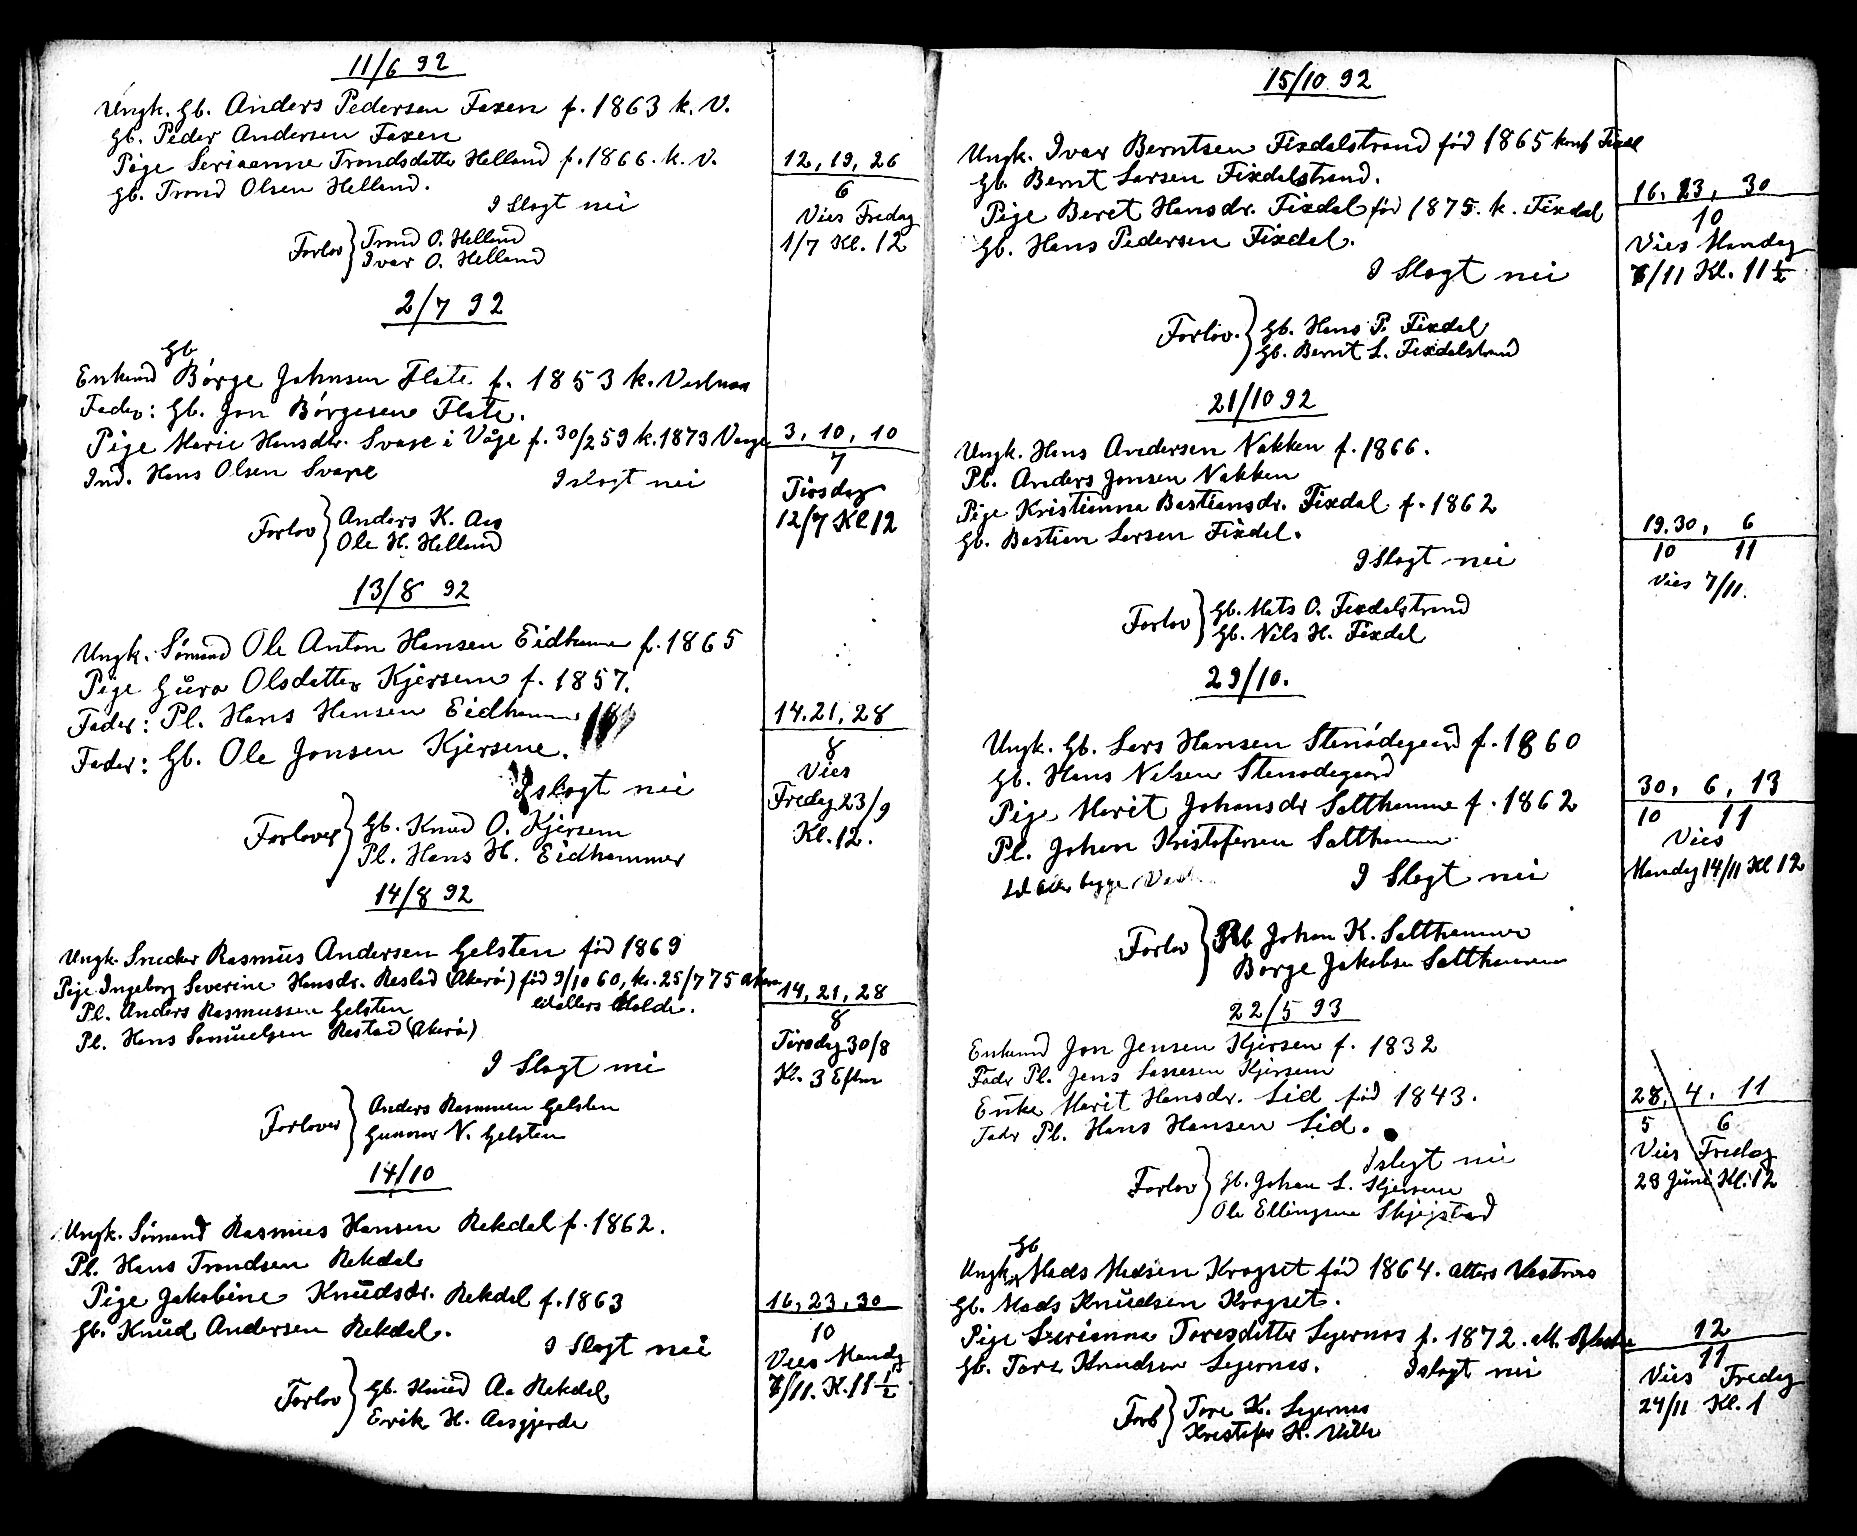 11/6 92
Ungk. Gb. Anders Pedersen Faxen f. 1863 k. V.
Gb. Peder Andersen Faxen
Pige Serianne Trondsdatter Helland f. 1866. k. V.
Gb. Trond Olsen Helland.
I Slagt nei
Forlov } Trond O. Helland
Ivar O. Helland
12, 19, 26
6
Vies Fredag
1/7 Kl. 12
2/7 92
Gb
Enkemd Børge Johnsen Flate f. 1853 k. Vestnæs
Fader: Gb. Jon Børgesen Flate.
Pige Marie Hansdtr. Svare i Våge f. 30/2 59 k. 1873
Ind. Hans Olsen Svare
I slagt nei
Forlov } Anders K. Aas
Ole H. Helland
3, 10, 10
7
Tirsdag
12/7 Kl 12
13/8 92
Ungk. Sømand Ole Anton Hansen Eidhammer f. 1865
Pige Guro Olsdatter Kjersem f. 1857.
Fader: Pl. Hans Hansen Eidhammer
Fader: Gb. Ole Jonsen Kjersem.
I slagt nei
Forlover } Gb. Knud O. Kjersem
Pl. Hans H. Eidhammer
14. 21, 28
8
Vies
Fredag 23/9
Kl. 12.
14/8 92
Ungk. Snecker Rasmus Andersen Gelsten fød 1869
Pige Ingeborg Severine Hansdr. Restad (Akerø) fød 9/10 60, k. 25/7 75
Pl. Anders Rasmussen Gelsten
Pl. Hans Samuelsen Restad (Akerø)
I Slagt nei
Forlover } Anders Rasmussen Gelsten
Gunnar N. Gelsten
14, 21, 28
8
Tirsdag 30/8
Kl. 3 Eftm
14/10
Ungk. Sømand Rasmus Hansen Rekdal f. 1862.
Pl. Hans Trondsen Rekdal
Pige Jakobine Knudsdr. Rekdal f. 1863
Gb. Knud Andersen Rekdal.
I Slagt nei
Forlov } Gb. Knud Aa Rekdal
Erik H. Aasgjerde
16, 23, 30
10
Vies Mandg
7/11. K. 11 1/2
15/10 92
Ungk. Ivar Berntsen Fixdalstrand fød 1865 konf Fixdal
Gb. Bernt Larsen Fixdalstrand.
Pige Beret Hansdr. Fixdal fød 1875. k. Fixdal
Gb. Hans Pedersen Fixdal.
I Slagt nei
Forlov. } Gb. Hans P. Fixdal
Gb. Bernt L. Fixdalstrand
16. 23, 30
10
Vies Mandag
7/11 Kl. 11 1/2
21/10 92
Ungk. Hans Andersen Nakken f. 1866.
Pl. Anders Jonsen Nakken
Pige Kristianna Bastiansdr. Fixdal f. 1862
Gb. Bastian Larsen Fixdal.
I Slagt nei
Forlov } Gb. Mats O. Fixdalstrand
Gb. Nils H. Fixdal
19. 30, 6
10 11
Vies 7/11.
29/10.
Ungk. Gb. Lars Hansen Stenødegaard f. 1860
Gb. Hans Nilsen Stenødegaard
Pige Marit Johansdr Salthamme f. 1862
Pl. Johan Kristofersen Salthammer
begge
I Slagt nei
Forlov } Johan K. Salthammer
Børge Jakobsen Salthammer
30, 6, 13
10 11
Vies
Mandag 14/11 Kl 12
22/5 93
Enkemd Jon Jensen Kjersem f. 1832
Fadr Pl. Jens Lassesen Kjersem
Enke Marit Hansdr. Lid fød 1843.
Fadr Pl. Hans Hansen Lid.
I slagt nei
Forlov } Gb. Johan L. Kjersem
Ole Ellingsen Skjegstad
28, 4. 11
5 6
Vies Fredag
23 Juni Kl. 12
Gb
Ungk. Mads Madsen Kragset fød 1864. Vestnæs
Gb. Mads Knudsen Kragset.
Pige Serianna Toresdatter Legernæs f. 1872.
Gb. Tore Knudsen Legernæs.
I slagt nei
Forl } Tore K. Legernæs
Kristofer K.
12
11
Vies Fredag
24/11 Kl. 1